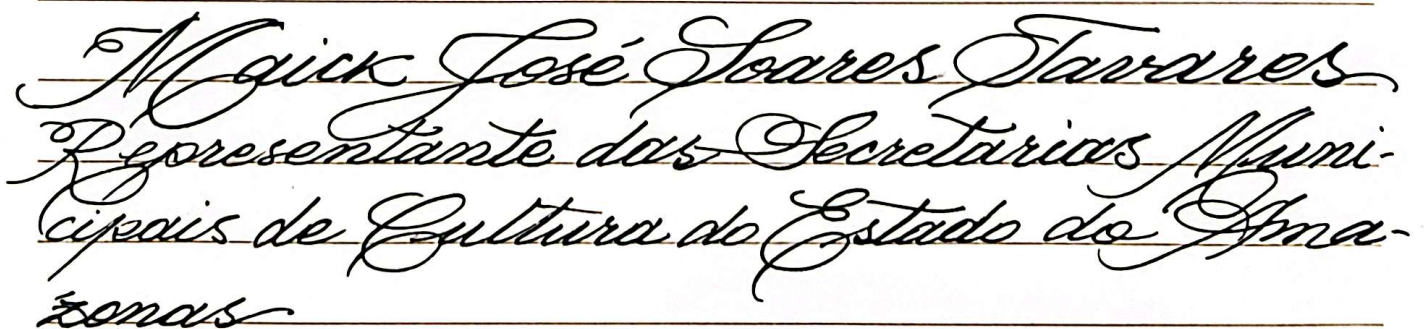 Maick José Soares Tavares
Representante das Secretarias Muni-
cipais de Cultura do Estado do Ama-
zonas